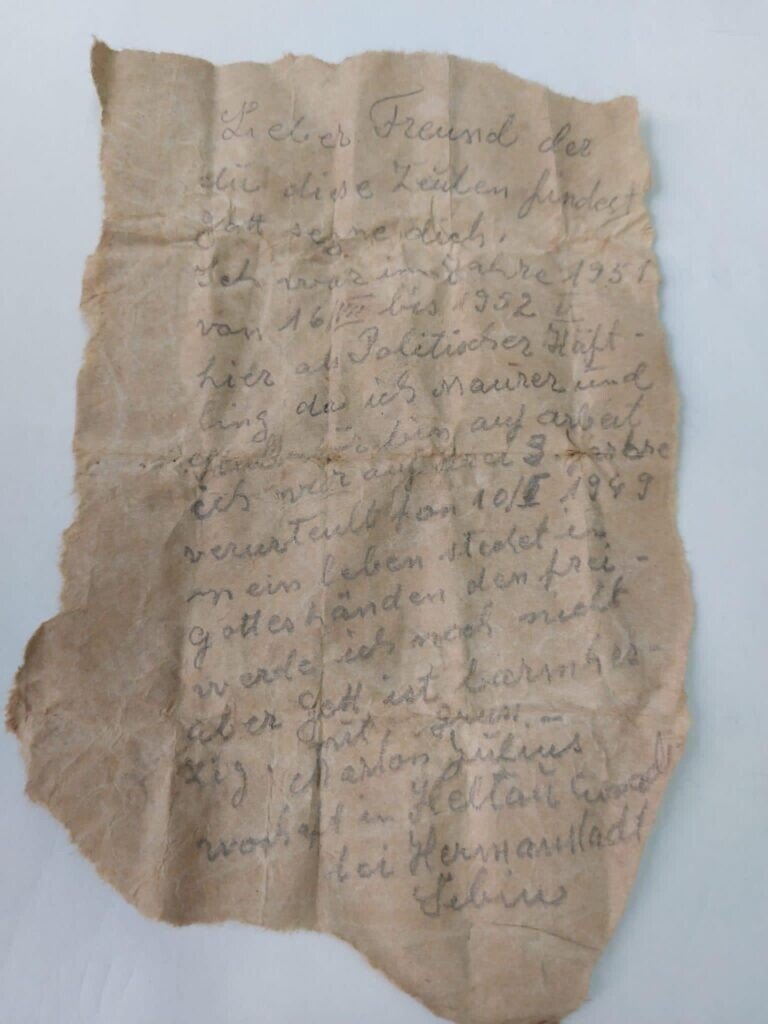 Lieber Freund der
du diese Zeulen findest
gott segne dich.
Ich war im Jahre 1951
von 16/VIII bis 1952 II
hier als Politischer Häft-
ling da ich Maurer und
bin auf arbeit
ich war auf 3 Jahre
verurteult von 10/I 1949
mein leben stehet in
gotteshänden den frei-
werde ich noch nicht
aber gott ist barmhes-
zig. mit gruss.-
Marton Julius
in Heltau
bei Hermanstadt
Sibiu